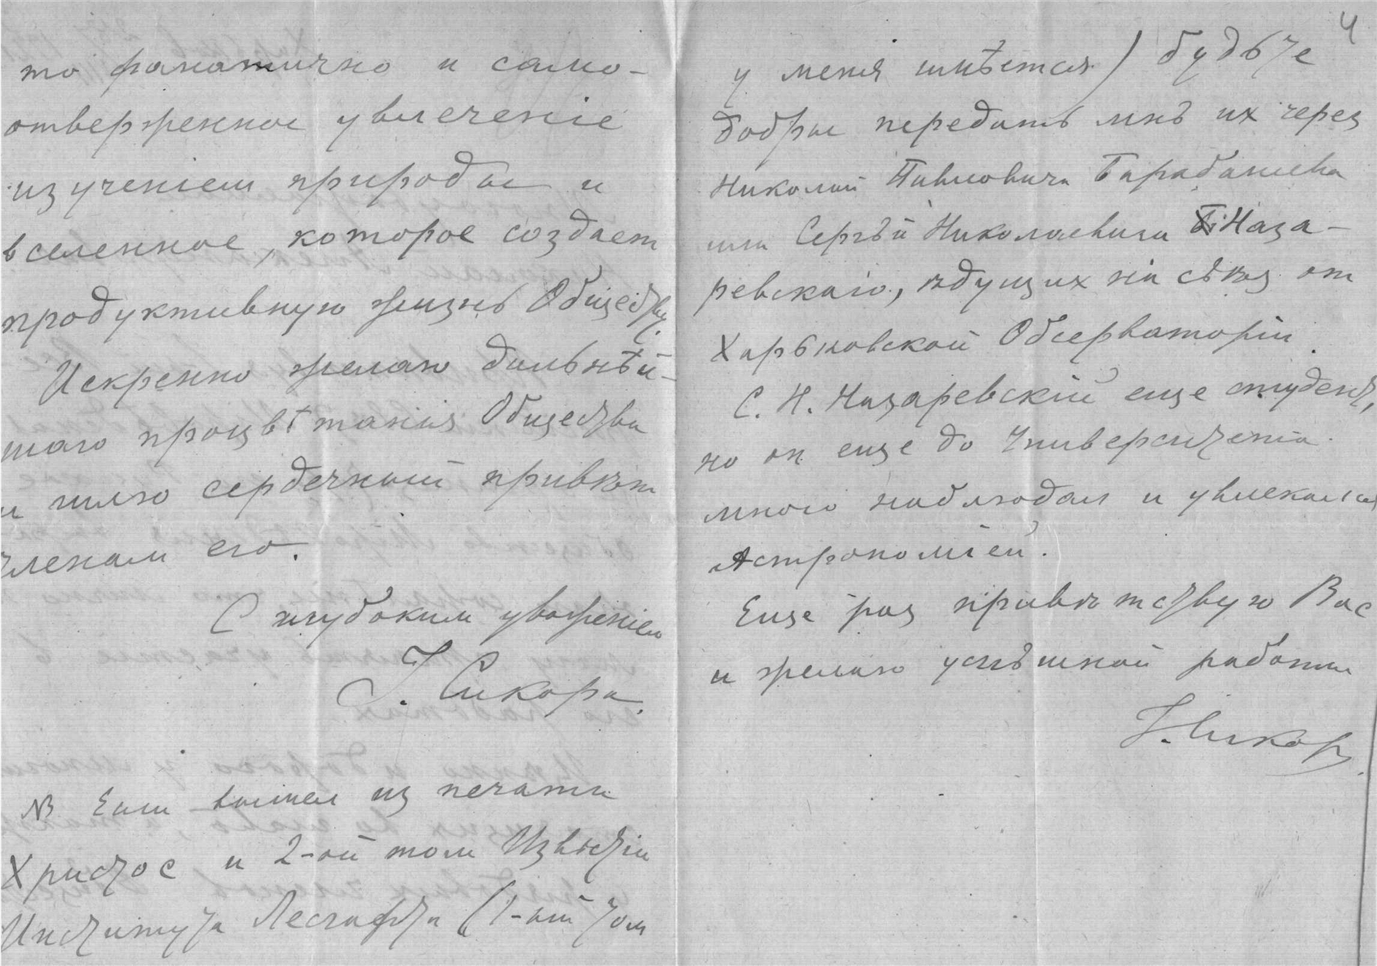 то фанатично и само-
отверженное увлеченiе
изученiем природы и
вселенное, которое создает
продуктивную жизнь Обществу.
Искренно желаю дальнѣй-
шаго процвѣтанiя Общества
и шлю сердечный привѣт
членам его.
С глубоким уваженiем
I. Сикора.
NB Если вышел из печати
Христос и 2-ой том Извѣстiй
Института Лесгафта (1-ый том
4
у меня имѣется) будьте
добры передать мнѣ их через
Николай Павловича Барабашева
или Сергѣй Николаевича Наза-
ревскаго, ѣдущих на съѣзд от
Харьковской Обсерваторiи.
С. Н. Назаревскiй еще студент,
но он еще до Университета
много наблюдал и увлекался
Астрономiей.
Еще раз привѣтствую Вас
и желаю успѣшной работы
I. Сикора.